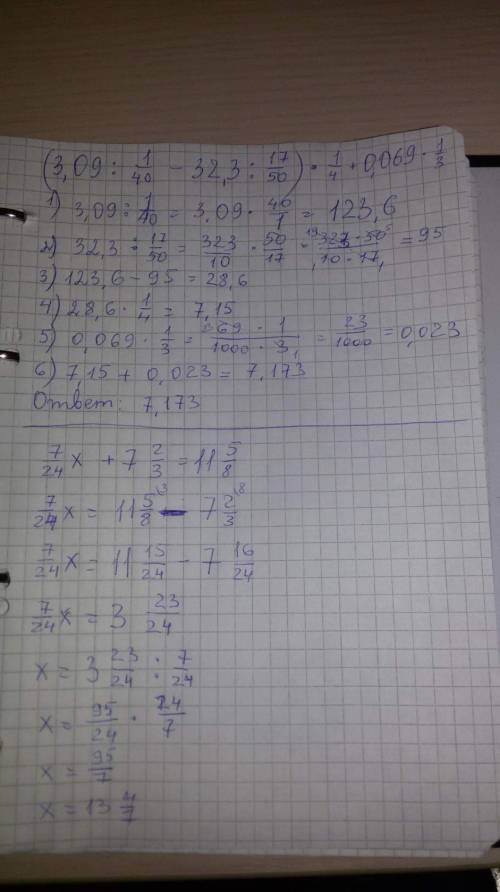 (3,09 : 1/40 - 32,3 : 17/50) · 1/4 + 0,069 · 1/3
1) 3,09 : 1/40 = 3,09 · 40/1 = 123,6
2) 32,3 : 17/50 = 323/10 · 50/17 = 323 · 50/10 · 17 = 95
3) 123,6 - 95 = 28,6
4) 28,6 · 1/4 = 7,15
5) 0,069 · 1/3 = 69 · 1/1000 · 3 = 23/1000 = 0,023
6) 7,15 + 0,023 = 7,173
Ответ: 7,173
7/24 x + 7 2/3 = 11 5/8
7/24 x = 11 5/8 - 7 2/3
7/24 x = 11 15/24 - 7 16/24
7/24 x = 3 23/24
x = 3 23/24 : 7/24
x = 95/24 · 24/7
x = 95/7
x = 13 4/7